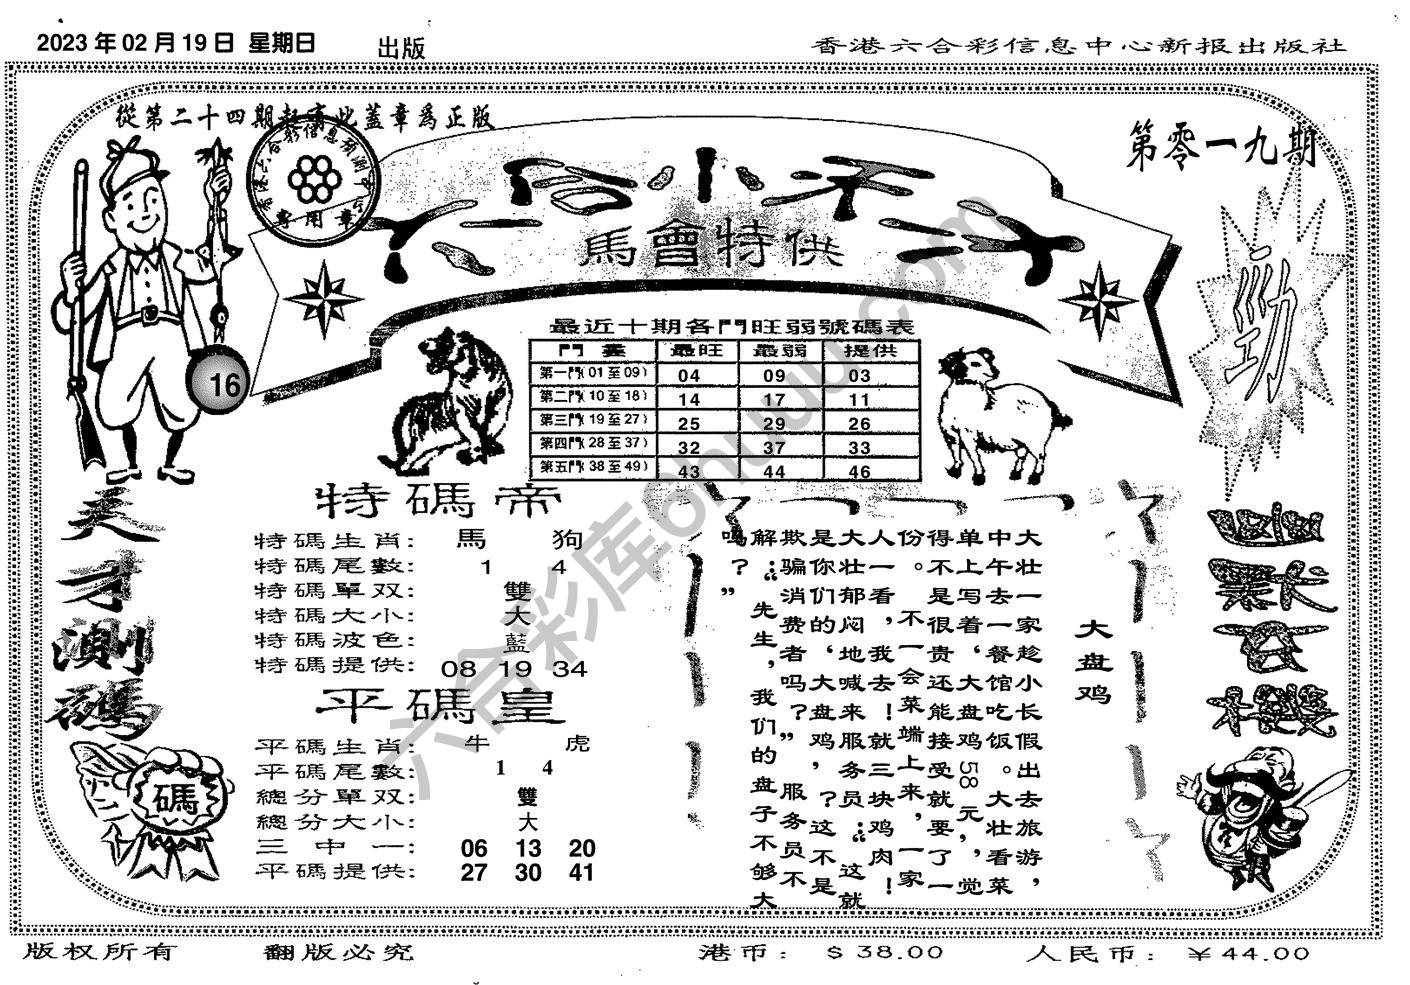 2023 年 02 月 19 日 星期日
出版
香港六合彩信息中心新报出版社
從第二十四期起有此蓋章爲正版
第零一九期
專用章
馬會特供
勁
16
最近十期各門旺弱號碼表
門 最旺 最弱 提供
第一門(01至09) 04 09 03
第二門(10至18) 14 17 11
第三門(19至27) 25 29 26
第四門(28至37) 32 37 33
第五門(38至49) 43 44 46
天才測碼
特碼帝
特碼生肖: 馬 狗
特碼尾數: 1 4
特碼單双: 雙
特碼大小: 大
特碼波色: 藍
特碼提供: 08 19 34
平碼皇
平碼生肖: 牛 虎
平碼尾數: 1 4
總分單双: 雙
總分大小: 大
三中一: 06 13 20
平碼提供: 27 30 41
碼
大盘鸡
大壮一家趁小长假出去旅游，
中午去一餐馆吃饭。大壮看菜
单上写着‘大盘鸡58元’，觉
得不是很贵还能接受就要了一
份。不一会菜端上来，一家
人一看，我去！就三块鸡肉！
大壮郁闷地喊来服务员：“这就
是你们的‘大盘鸡’？这不是
欺骗消费者吗？”服务员不
解：“先生，我们的盘子不够大
吗？”
六合彩库6huuu.com
版权所有
翻版必究
港币：$38.00
人民币：￥44.00